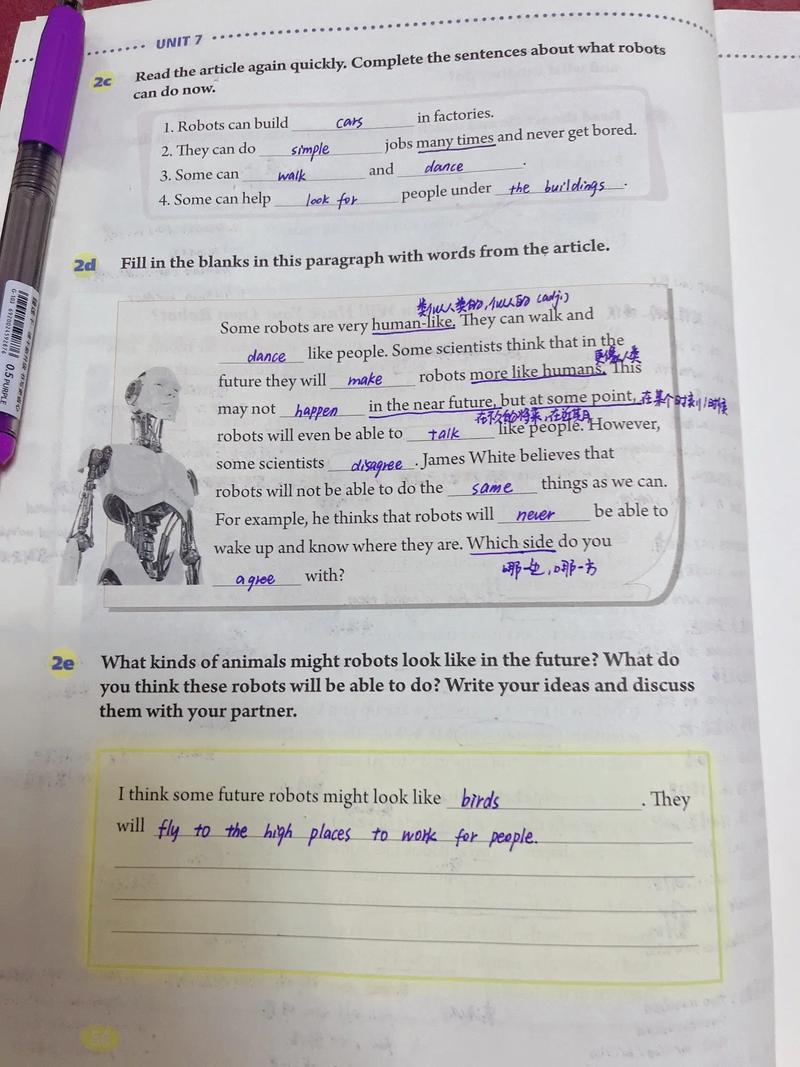 UNIT 7
2c Read the article again quickly. Complete the sentences about what robots
can do now.
1. Robots can build cars in factories.
2. They can do simple jobs many times and never get bored.
3. Some can walk and dance .
4. Some can help look for people under the buildings .
2d Fill in the blanks in this paragraph with words from the article.
类似人类的,似人的 (adj.)
Some robots are very human-like. They can walk and
dance like people. Some scientists think that in the
更像人类
future they will make robots more like humans. This
may not happen in the near future, but at some point, 在某个时刻/时候
在不久的将来,在近期
robots will even be able to talk like people. However,
some scientists disagree . James White believes that
robots will not be able to do the same things as we can.
For example, he thinks that robots will never be able to
wake up and know where they are. Which side do you
哪一边,哪一方
agree with?
2e What kinds of animals might robots look like in the future? What do
you think these robots will be able to do? Write your ideas and discuss
them with your partner.
I think some future robots might look like birds . They
will fly to the high places to work for people.
0.5 PURPLE